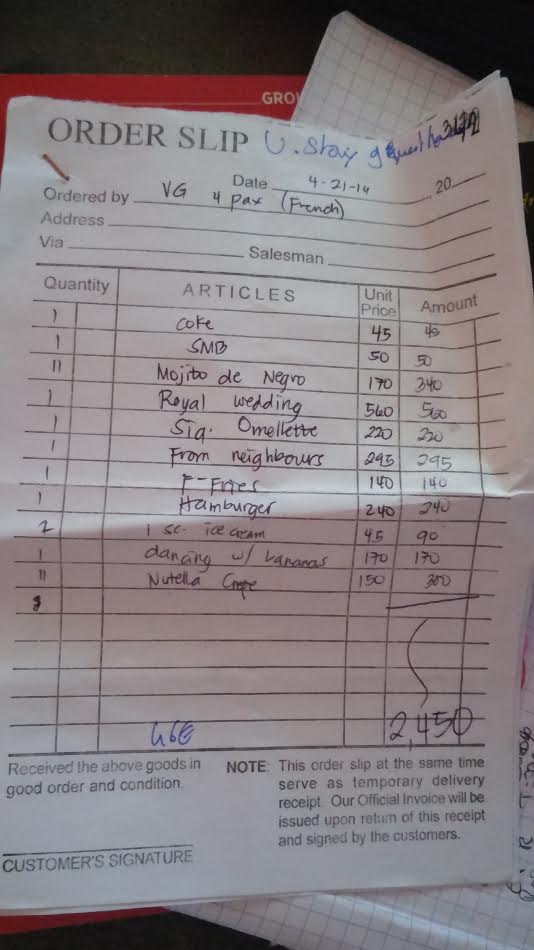 GROU
ORDER SLIP U. Stay guest
Date 4-21-14 20
Ordered by VG 4 pax (French)
Address
Via Salesman
Quantity ARTICLES Unit Price Amount
1 coke 45 45
1 SMB 50 50
11 Mojito de Negro 170 340
1 Royal wedding 560 560
1 Sig. Omellette 220 220
1 From neighbours 295 295
1 F-Fries 140 140
1 Hamburger 240 240
2 1 sc. ice cream 45 90
1 dancing w/ bananas 170 170
11 Nutella Crepe 150 300
2,450
Received the above goods in
good order and condition.
NOTE: This order slip at the same time
serve as temporary delivery
receipt. Our Official Invoice will be
issued upon return of this receipt
and signed by the customers.
CUSTOMER'S SIGNATURE